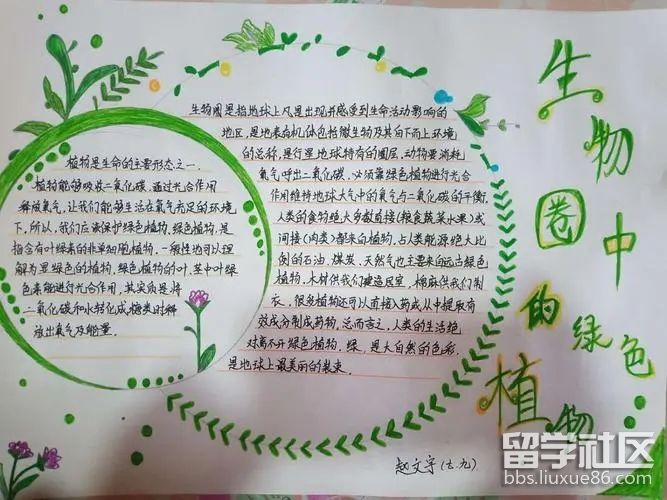 生物圈中的绿色植物
植物是生命的主要形态之一.
植物能够吸收二氧化碳.通过光合作用
释放氧气,让我们能够生活在氧气充足的环境
下,所以,我们应该保护绿色植物,绿色植物,是
指含有叶绿素的非单细胞植物.一般性地可以理
解为是绿色的植物,绿色植物的叶,茎中叶绿
色素能进行光合作用,其实质是将
二氧化碳和水转化成糖类时释
放出氧气及能量.
生物圈是指地球上凡是出现并感受到生命活动影响的
地区,是地表有机体包括微生物及其自下而上环境
的总称,是行星地球特有的圈层,动物要消耗
氧气呼出二氧化碳.必须靠绿色植物进行光合
作用维持地球大气中的氧气与二氧化碳的平衡.
人类的食物绝大多数直接(粮食蔬菜水果)或
间接(肉类)都来自植物,占人类能源绝大比
例的石油.煤炭,天然气也主要来自远古绿色
植物,木材供我们建造居室,棉麻供我们制
衣,很多植物还可以直接入药或从中提取有
效成分制成药物,总而言之,人类的生活绝
对离不开绿色植物,绿,是大自然的色彩,
是地球上最美丽的装束.
赵文宇(七.九)
留学社区
bbs.liuxue86.com